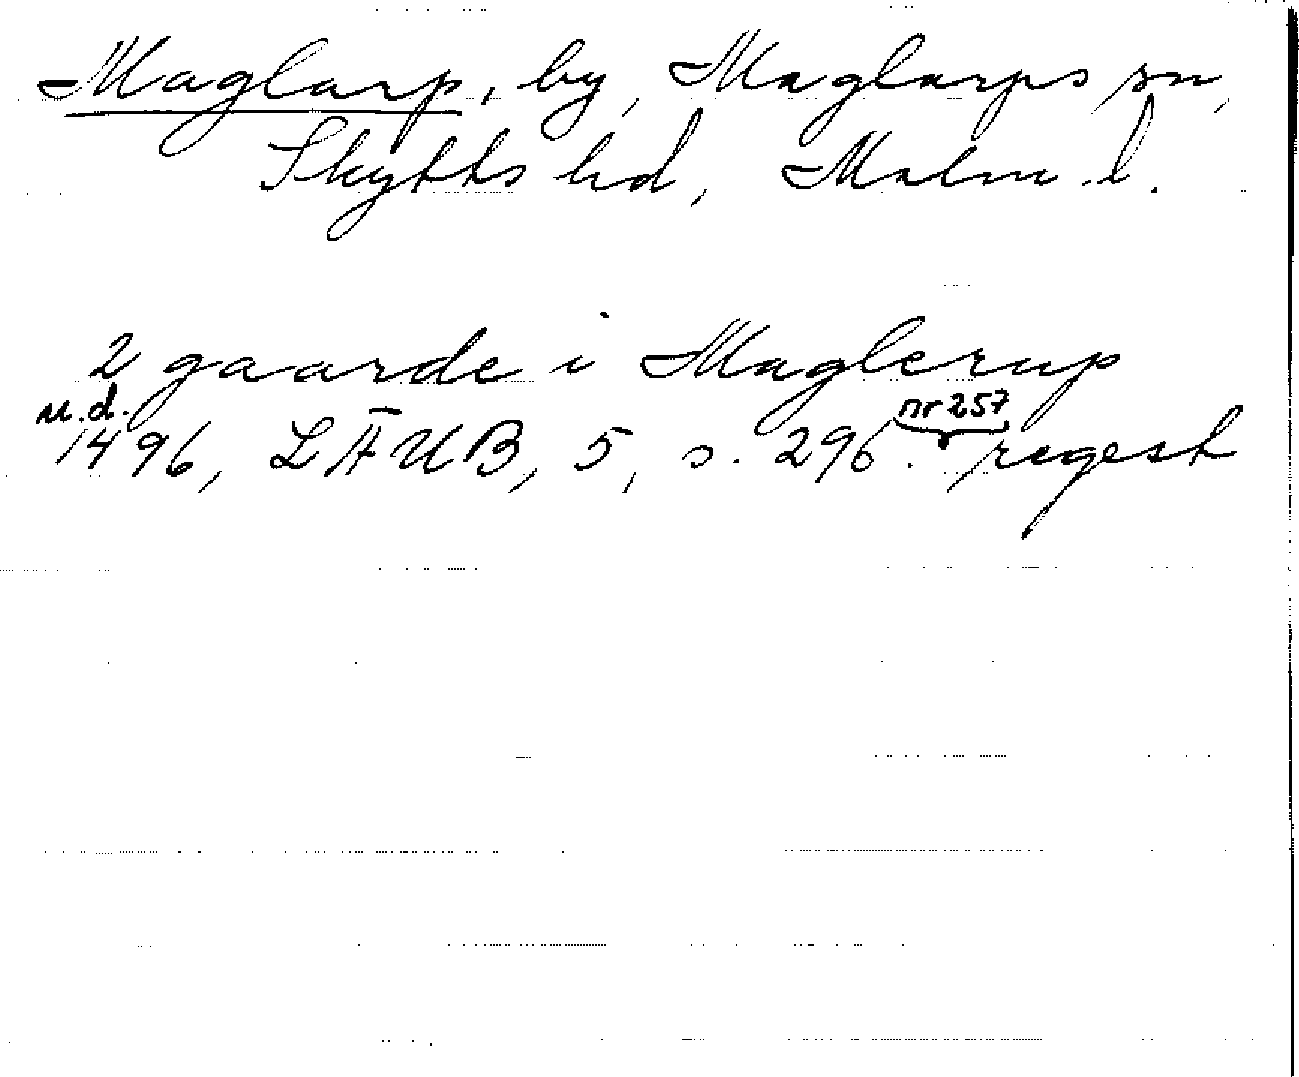 Maglarp, by, Maglarps sn,
Skytts hd, Malm. l.
2 gaarde i Maglerup
u.d. nr 257
1496, LÄUB, 5, s. 296. regest